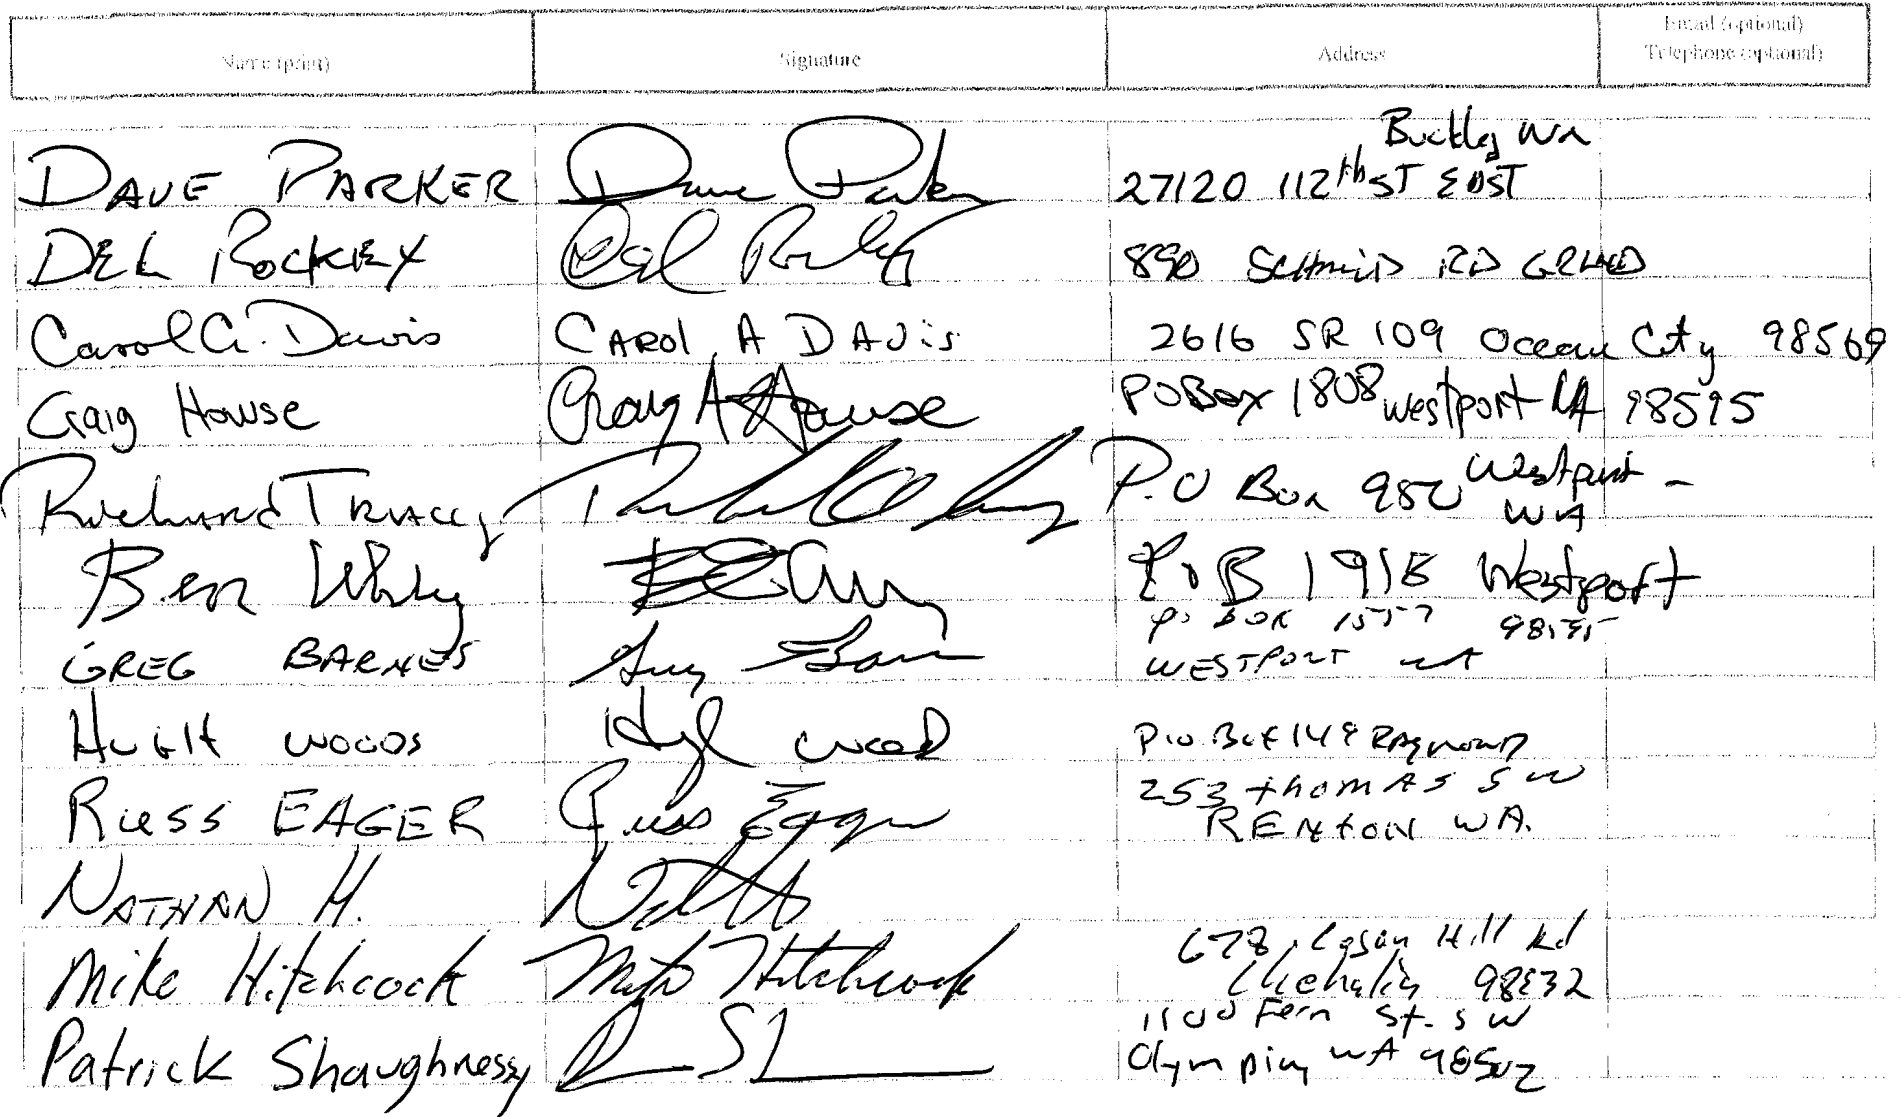 Name (print) Signature Address Email (optional)
Telephone (optional)
DAVE PARKER Dave Parker 27120 112th ST EAST Buckley Wa
DEL ROCKEY Del Rockey 890 SCHMID RD GRLND
Carol A. Davis CAROL A DAVis 2616 SR 109 Ocean City 98569
Craig Howse Craig A Howse PO Box 1808 Westport WA 98595
Richard Tracy P.O Box 950 Westport WA -
Ben P o B 1918 Westport
GREG BARNES Greg Barnes P. O BOX 1557 98595
WESTPORT WA
HUGH WOODS Hugh Wood P.O. Box 148 Raymond
RUSS EAGER Russ Eager 253 thomAS SW
RENtON WA.
NATHAN H.
Mike Hitchcock Mike Hitchcock 678 Logan Hill Rd
Chehalis 98532
Patrick Shaughnessy 1100 Fern St. SW
Olympia, WA 98502